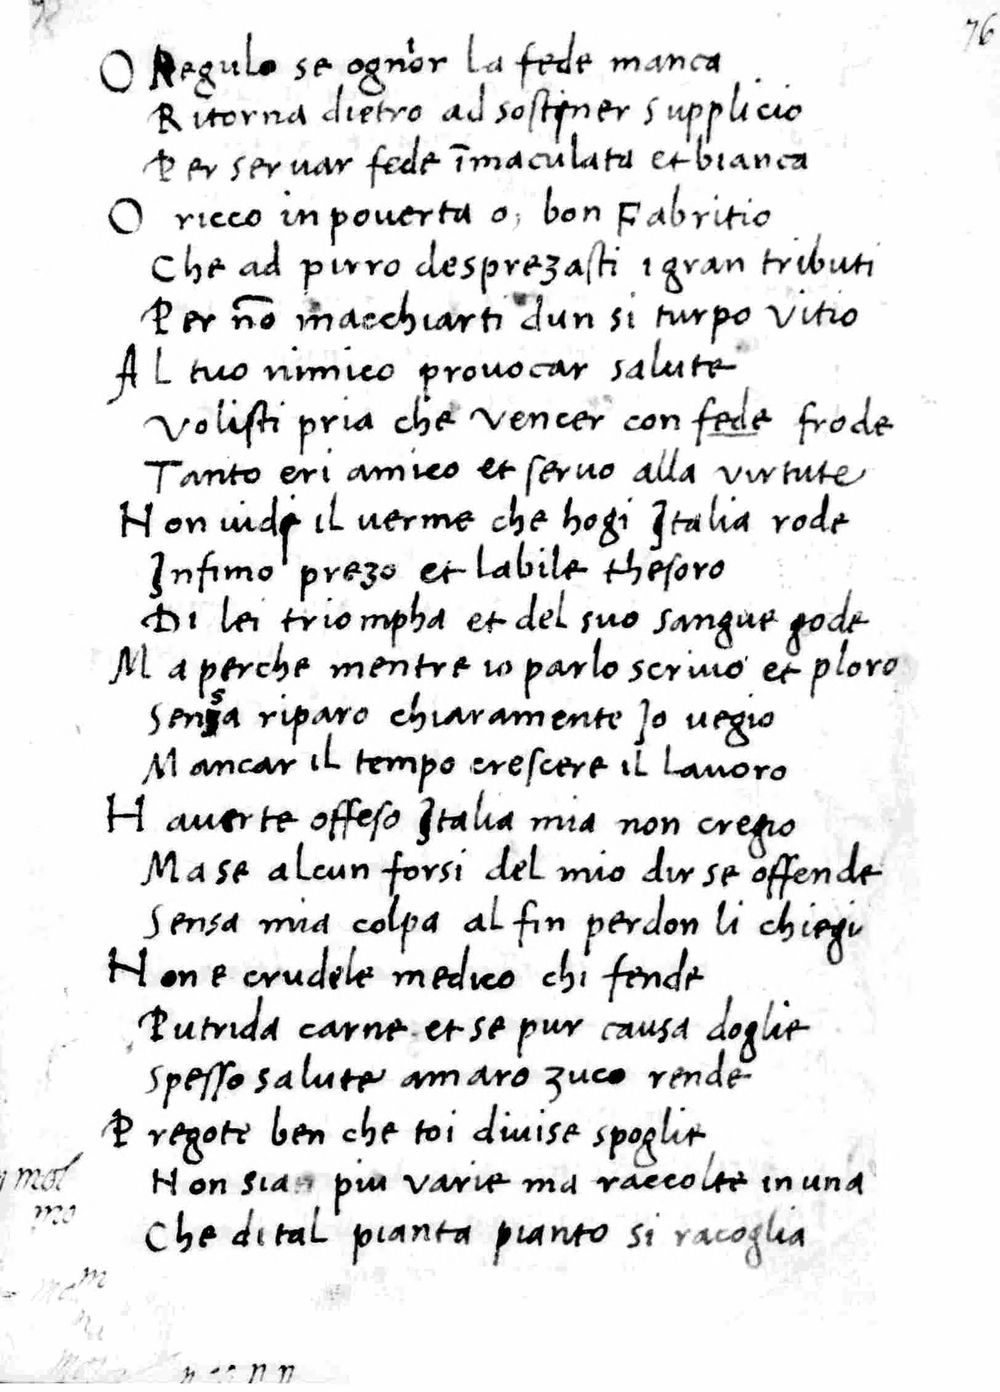 76
O Regulo se ognior la fede manca
Ritorna dietro ad sostiner supplicio
Per servar fede īmaculata et bianca
O ricco in poverta o, bon Fabritio
Che ad pirro desprezasti i gran tributi
Per nō macchiarti dun si turpo vitio
Al tuo nimico provocar salute
Volisti pria che vencer con fede frode
Tanto eri amico et servo alla virtute
Non uide il uerme che hogi Italia rode
Infimo prezo et labile thesoro
Di lei triompha et del suo sangue gode
Ma perche mentre io parlo scrivo et ploro
Sensa riparo chiaramente Io uegio
Mancar il tempo crescere il lavoro
Haverte offeso Italia mia non cregio
Ma se alcun forsi del mio dir se offende
Sensa mia colpa al fin perdon li chiegi
Non e crudele medico chi fende
Putrida carne et se pur causa doglie
Spesso salute amaro zuco rende
Pregote ben che toi divise spoglie
Non sian piu varie ma raccolte in una
Che di tal pianta pianto si racoglia
mol
mo